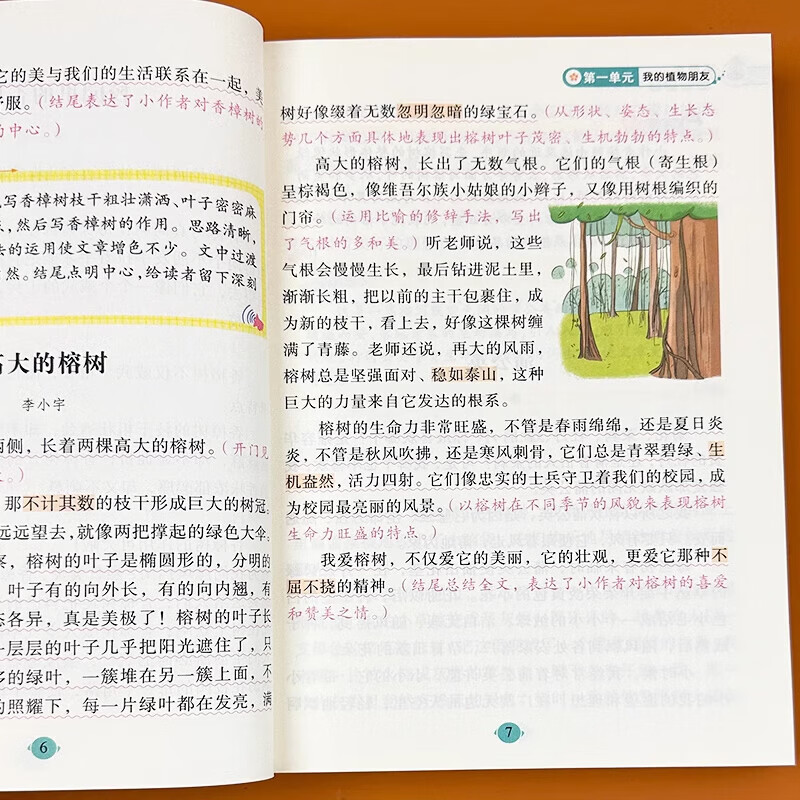 它的美与我们的生活联系在一起，美
舒服。（结尾表达了小作者对香樟树的
的中心。）
写香樟树枝干粗壮潇洒、叶子密密麻
，然后写香樟树的作用。思路清晰，
法的运用使文章增色不少。文中过渡
然。结尾点明中心，给读者留下深刻
高大的榕树
李小宇
两侧，长着两棵高大的榕树。（开门见
。）
那不计其数的枝干形成巨大的树冠。
远远望去，就像两把撑起的绿色大伞。
，榕树的叶子是椭圆形的，分明的
叶子有的向外长，有的向内翘，有
态各异，真是美极了！榕树的叶子长
一层层的叶子几乎把阳光遮住了，只
多的绿叶，一簇堆在另一簇上面，不
的照耀下，每一片绿叶都在发亮，满
6
第一单元 我的植物朋友
树好像缀着无数忽明忽暗的绿宝石。（从形状、姿态、生长态
势几个方面具体地表现出榕树叶子茂密、生机勃勃的特点。）
高大的榕树，长出了无数气根。它们的气根（寄生根）
呈棕褐色，像维吾尔族小姑娘的小辫子，又像用树根编织的
门帘。（运用比喻的修辞手法，写出
了气根的多和美。）听老师说，这些
气根会慢慢生长，最后钻进泥土里，
渐渐长粗，把以前的主干包裹住，成
为新的枝干，看上去，好像这棵树缠
满了青藤。老师还说，再大的风雨，
榕树总是坚强面对、稳如泰山，这种
巨大的力量来自它发达的根系。
榕树的生命力非常旺盛，不管是春雨绵绵，还是夏日炎
炎，不管是秋风吹拂，还是寒风刺骨，它们总是青翠碧绿、生
机盎然，活力四射。它们像忠实的士兵守卫着我们的校园，成
为校园最亮丽的风景。（以榕树在不同季节的风貌来表现榕树
生命力旺盛的特点。）
我爱榕树，不仅爱它的美丽，它的壮观，更爱它那种不
屈不挠的精神。（结尾总结全文，表达了小作者对榕树的喜爱
和赞美之情。）
7